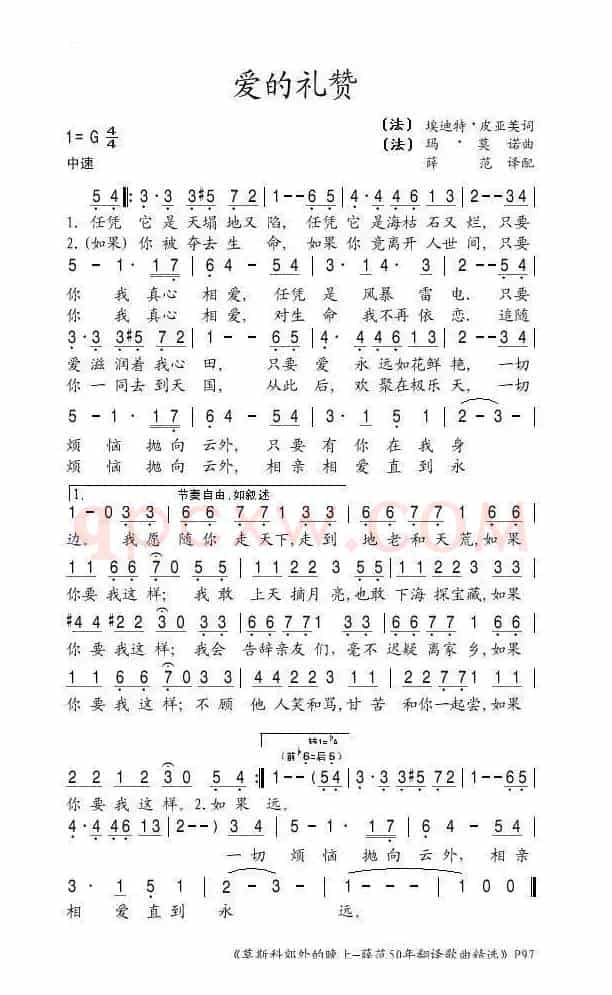 爱的礼赞
1= G 4/4
〔法〕 埃迪特·皮亚芙词
〔法〕 玛·莫诺曲
中速
薛 范 译配
5 4 ‖: 3 · 3 3 #5 7 2 | 1 - - 6 5 | 4 · 4 4 6 1 3 | 2 - - 5 4 |
1. 任凭 它是天塌地又陷, 任凭它是海枯石又烂,只要
2.(如果)你被夺去生命, 如果你竟离开人世间,只要
5 - 1 · 1 7 | 6 4 - 5 4 | 3 · 1 3 | 1 4 · 3 | 2 - - 5 4 |
你 我真心 相爱, 任凭是 风暴 雷电. 只要
你 我真心 相爱, 对生命 我不再依恋. 追随
3 · 3 3 #5 7 2 | 1 - - 6 5 | 4 · 4 4 6 1 3 | 2 - - 3 4 |
爱滋润着我心田, 只要爱永远如花鲜艳,一切
你一同去到天国, 从此后,欢聚在极乐天,一切
5 - 1 · 1 7 | 6 4 - 5 4 | 3 · 1 5 1 | 2 - 3 - |
烦恼抛向云外,只要有你在我身
烦恼抛向云外,相亲相爱直到永
1. 节奏自由,如叙述
1 - 0 3 3 | 6 6 7 7 1 3 3 | 6 6 7 7 1 3 3 |
边。 我愿随你走天下,走到地老和天荒,如果
1 1 6 6 7 0 5 | 1 1 2 2 3 5 5 | 1 1 2 2 3 1 1 |
你要我这样; 我敢上天摘月亮,也敢下海探宝藏,如果
#4 #4 #2 2 3 0 3 | 6 6 7 7 1 3 3 | 6 6 7 7 1 3 3 |
你要我这样;我会告辞亲友们,毫不迟疑离家乡,如果
1 1 6 6 7 0 3 3 | 6 6 7 7 1 3 3 | 6 6 7 7 1 1 1 |
你要我这样;不顾他人笑和骂,甘苦和你一起尝,如果
转1=bA
(前b6=后5)
2 2 1 2 3 0 5 4 :‖ 1 - - (5 4 | 3 · 3 3 #5 7 2 | 1 - - 6 5 |
你要我这样。2.如果 远。
4 · 4 4 6 1 3 | 2 - - ) 3 4 | 5 - 1 · 1 7 | 6 4 - 5 4 |
一切 烦恼抛向云外,相亲
3 · 1 5 1 | 2 - 3 - | 1 - - - | 1 0 0 ‖
相爱直到永 远。
《莫斯科郊外的晚上-薛范50年翻译歌曲精选》P97
qpcxw.COM